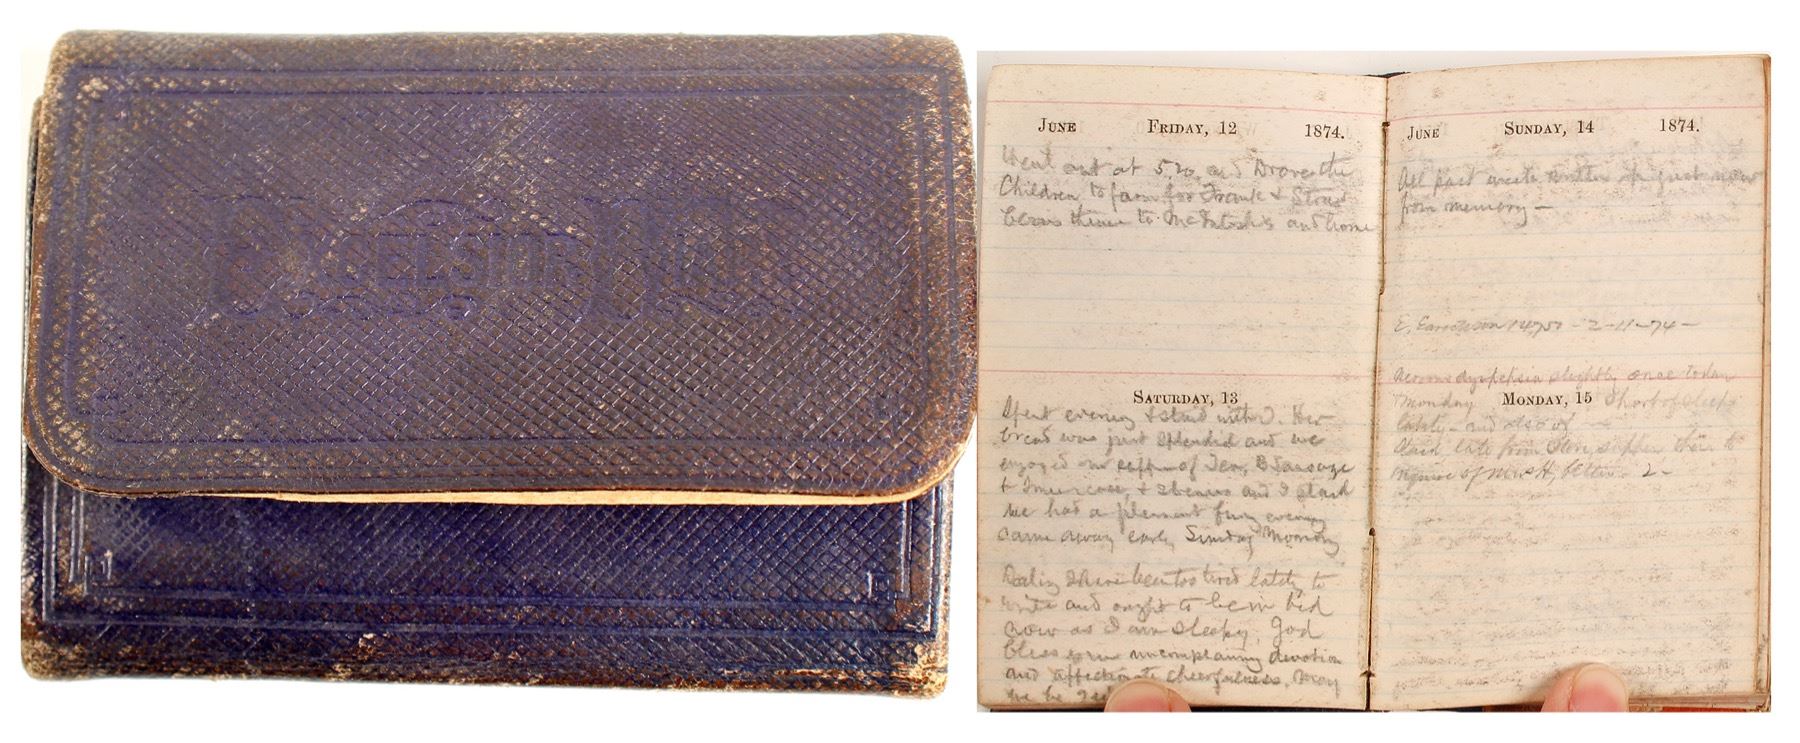 EXCELSIOR
JUNE FRIDAY, 12 1874.
Went out at 5.20, and Drove the
Children to farm for Frank &
thence to McIntosh's and home
SATURDAY, 13
Spent evening & staid with J. Her
bread was just splendid and we
enjoyed our supper of Tea, B Sausage
and I staid
We had a pleasant evening
came away early Sunday Morning
I have been too tired lately to
write and ought to be in bed
now as I am sleepy. God
bless your uncomplaining devotion
and affectionate cheerfulness. May
we be
JUNE SUNDAY, 14 1874.
All past week written up just now
from memory —
- 2 - 11 - 74 -
dyspepsia slightly once today
Monday Short of sleep
MONDAY, 15
lately - and also of
Staid late from Store, supper there to
of Mrs H, letter - 2 -